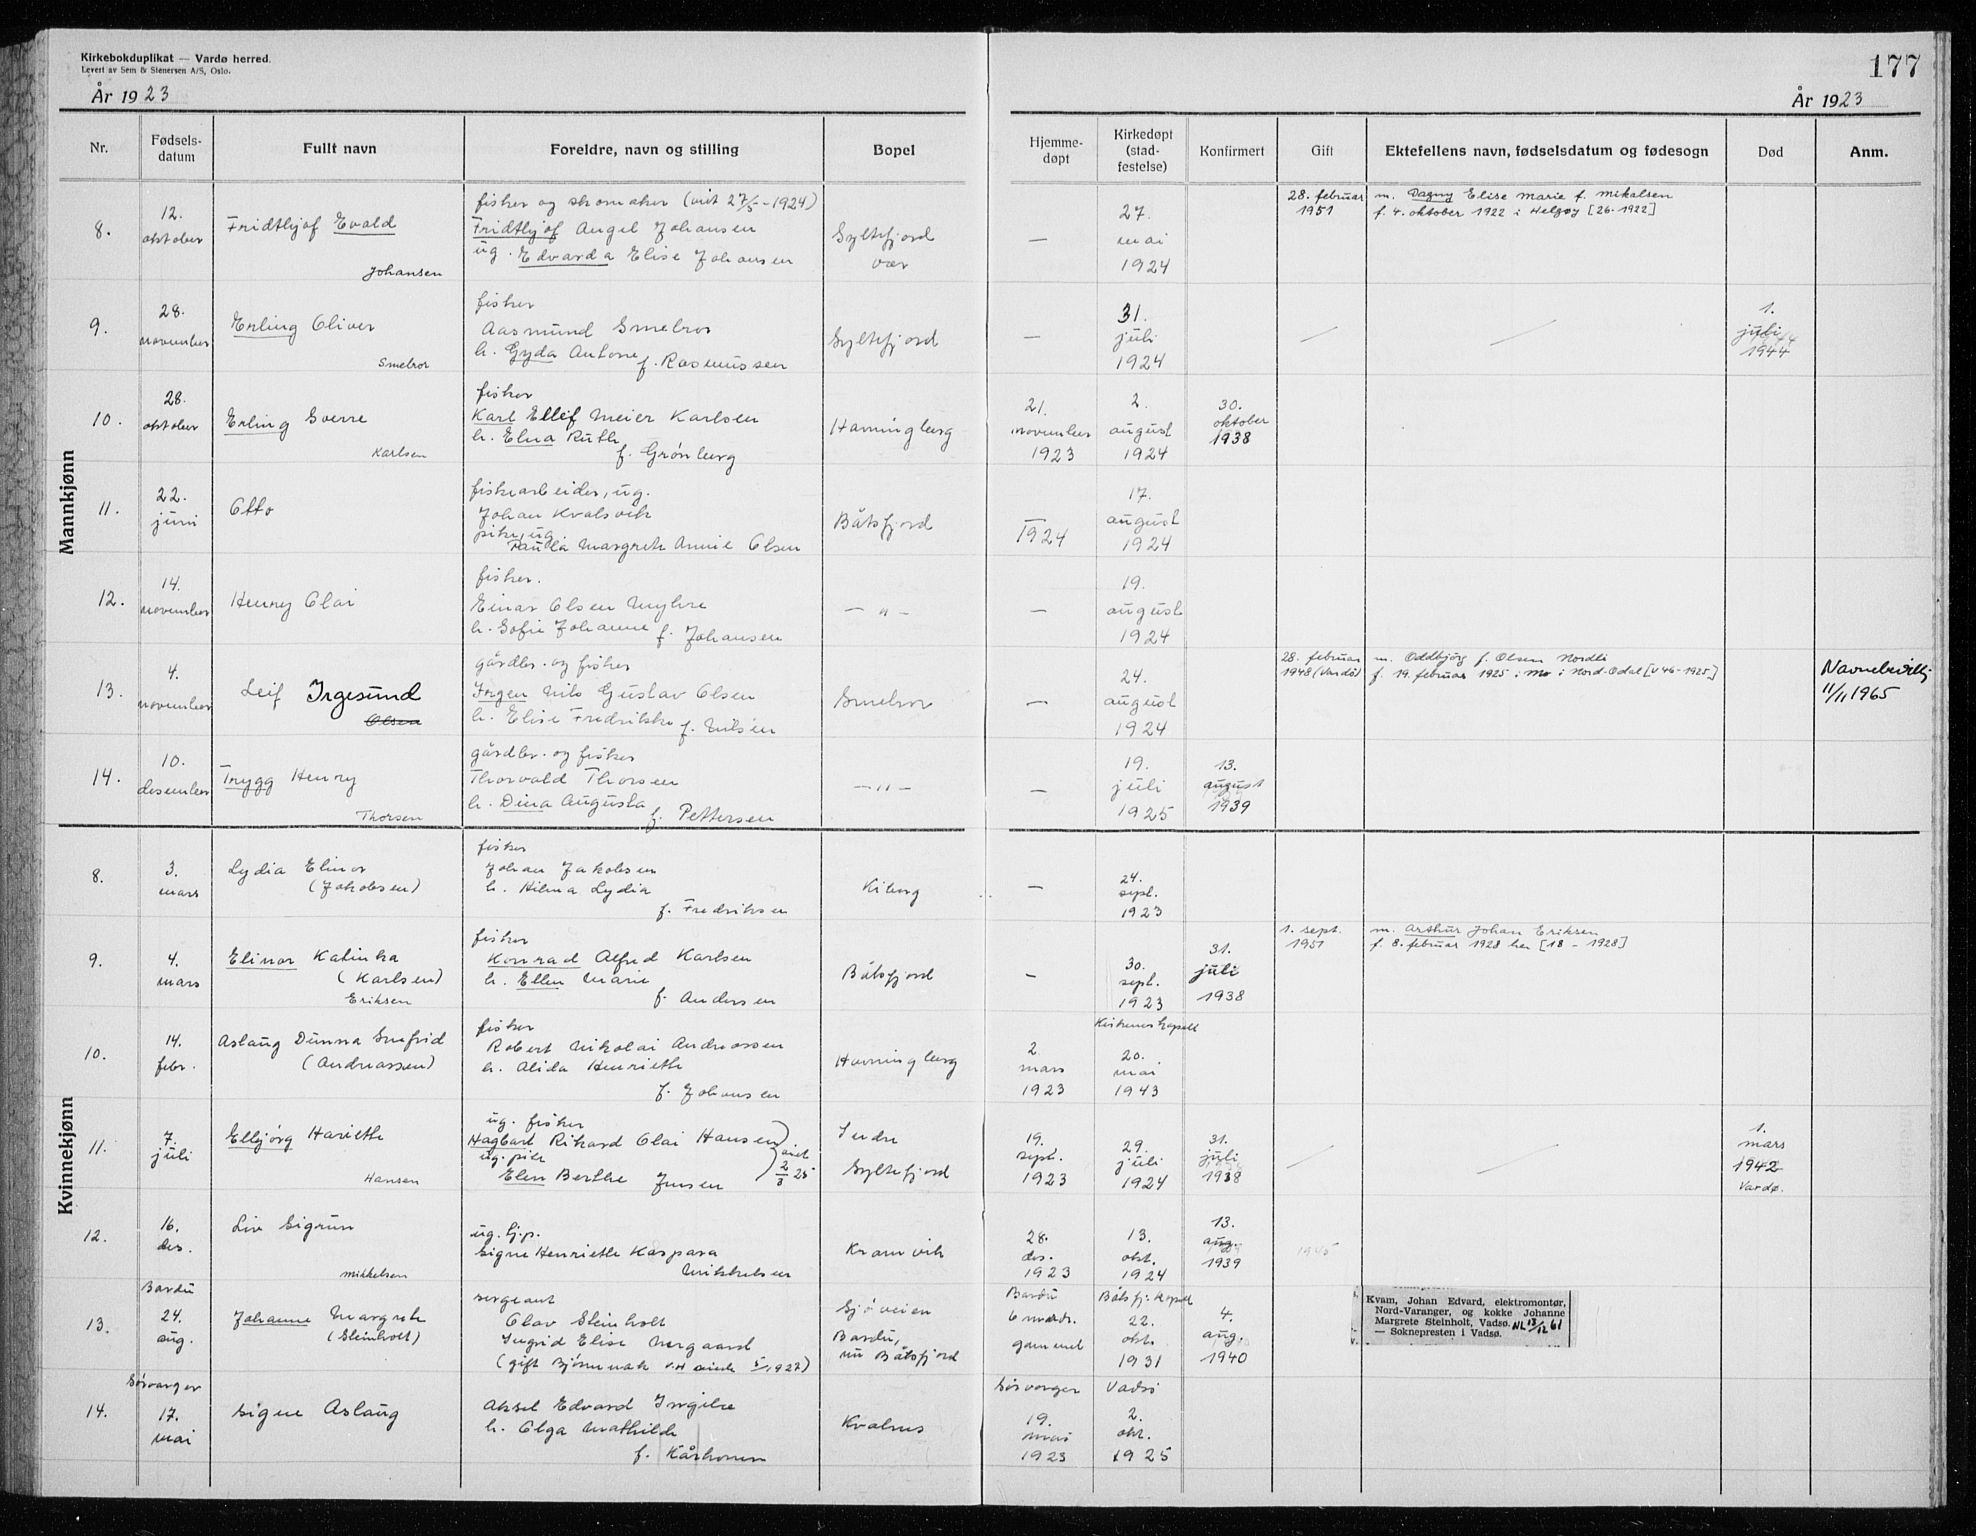 Kirkebokduplikat — Vardø herred.
Levert av Sem & Stenersen A/S, Oslo.
177
År 1923
År 1923
Nr.
Fødsels-
datum
Fullt navn
Foreldre, navn og stilling
Bopel
Hjemme-
døpt
Kirkedøpt
(stad-
festelse)
Konfirmert
Gift
Ektefellens navn, fødselsdatum og fødesogn
Død
Anm.
Mannkjønn
8.
12.
oktober
Fridthjof Evald
Johansen
fisker og skomaker (viet 27/5 - 1924)
Fridthjof Angel Johansen
ug. Edvarda Elise Johansen
Syltefjord
vær
—
27.
mai
1924
28. februar
1951
m. Dagny Elise Marie f. Mikalsen
f. 4. oktober 1922 i Helgøy [26-1922]
9.
28.
november
Erling Oliver
Smelror
fisker
Aasmund Smelror
h. Gyda Antone f. Rasmussen
Syltefjord
—
31.
juli
1924
1.
juli
1944
10.
28.
oktober
Erling Sverre
Karlsen
fisker
Karl Ellef Meier Karlsen
h. Elna Ruth
f. Grønberg
Havningberg
21.
november
1923
2.
august
1924
30.
oktober
1938
11.
22.
juni
Otto
fiskearbeider, ug.
Johan Kvalsvik
pike, ug.
Paula Margreth Annie Olsen
Båtsfjord
—
1924
17.
august
1924
12.
14.
november
Henry Olai
fisker.
Einar Olsen Myhre
h. Sofie Johanne f. Johansen
— " —
—
19.
august
1924
13.
4.
november
Leif Irgesund
Olsen
gårdbr. og fisker
Jørgen Nils Gustav Olsen
h. Elise Fredrikke f. Nilsen
Smelror
—
24.
august
1924
28. februar
1948 (Vardø)
m. Oddbjörg f. Olsen Nordli
f. 19. februar 1925 i Mo i Nord-Odal [v 46-1925]
11/11 1965
14.
10.
desember
Trygg Henry
Thorsen
gårdbr. og fisker
Thorvald Thorsen
h. Dina Augusta
f. Pettersen
— " —
—
19.
juli
1925
13.
august
1939
Kvinnekjønn
8.
3.
mars
Lydia Elinor
(Jakobsen)
fisker
Johan Jakobsen
h. Hilma Lydia
f. Fredriksen
Kiberg
—
24.
sept.
1923
9.
4.
mars
Elinor Katinka
(Karlsen)
Eriksen
fisker
Konrad Alfred Karlsen
h. Ellen Marie
f. Andersen
Båtsfjord
—
30.
sept.
1923
31.
juli
1938
1. sept.
1951
m. Arthur Johan Eriksen
f. 8. februar 1928 her [18 - 1928]
10.
14.
febr.
Aslaug Dunna Snefrid
(Andreassen)
fisker
Robert Nikolai Andreassen
h. Alida Henriette
f. Johansen
Havningberg
2.
mars
1923
Kirkenes kapell
20.
mai
1943
11.
7.
juli
Elbjörg Hariette
Hansen
ug. fisker
Hagbart Rikard Olai Hansen
ug. pike
Elen Berthe Jensen
viet
2/3 25
Indre
Syltefjord
19.
sept.
1923
29.
juli
1924
31.
juli
1938
1.
mars
1942
Vardø.
12.
16.
des.
Liv Sigrun
Mikkelsen
ug. tj.p.
Signe Henriette Kaspara
Mikkelsen
Kramvik
28.
des.
1923
13.
okt.
1924
13.
aug.
1939
1945
13.
Bardu
24.
aug.
Johanne Margreth
(Steinholt)
sergeant
Olav Steinholt
Ingrid Elise Norgaard
Sjøveien
Bardu,
nu Båtsfjord
Bardu
6 mndr.
gammel
Båtsfj. kapell
22.
okt.
1931
4.
aug.
1940
Kvam, Johan Edvard, elektromontør,
Nord-Varanger, og kokke Johanne
Margrete Steinholt, Vadsø. NL 13/12 61
— Soknepresten i Vadsø.
14.
Sørvarger
17.
mai
Signe Aslaug
Aksel Edvard Ingilæ
h. Olga Mathilde
f. Kårhonen
Kvalnes
Sørvarger
19.
mai
1923
Vadsø
2.
okt.
1925